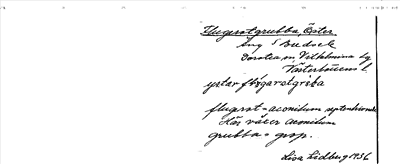 Flugerotgrubba, Öster
Äng i Budsele
Dorotea m. Vilhelmina lg
Västerbottens l.
flugerot = aconitum septentrionale
Här växer aconitum
grubba = grop.
Lisa Lidberg 1936